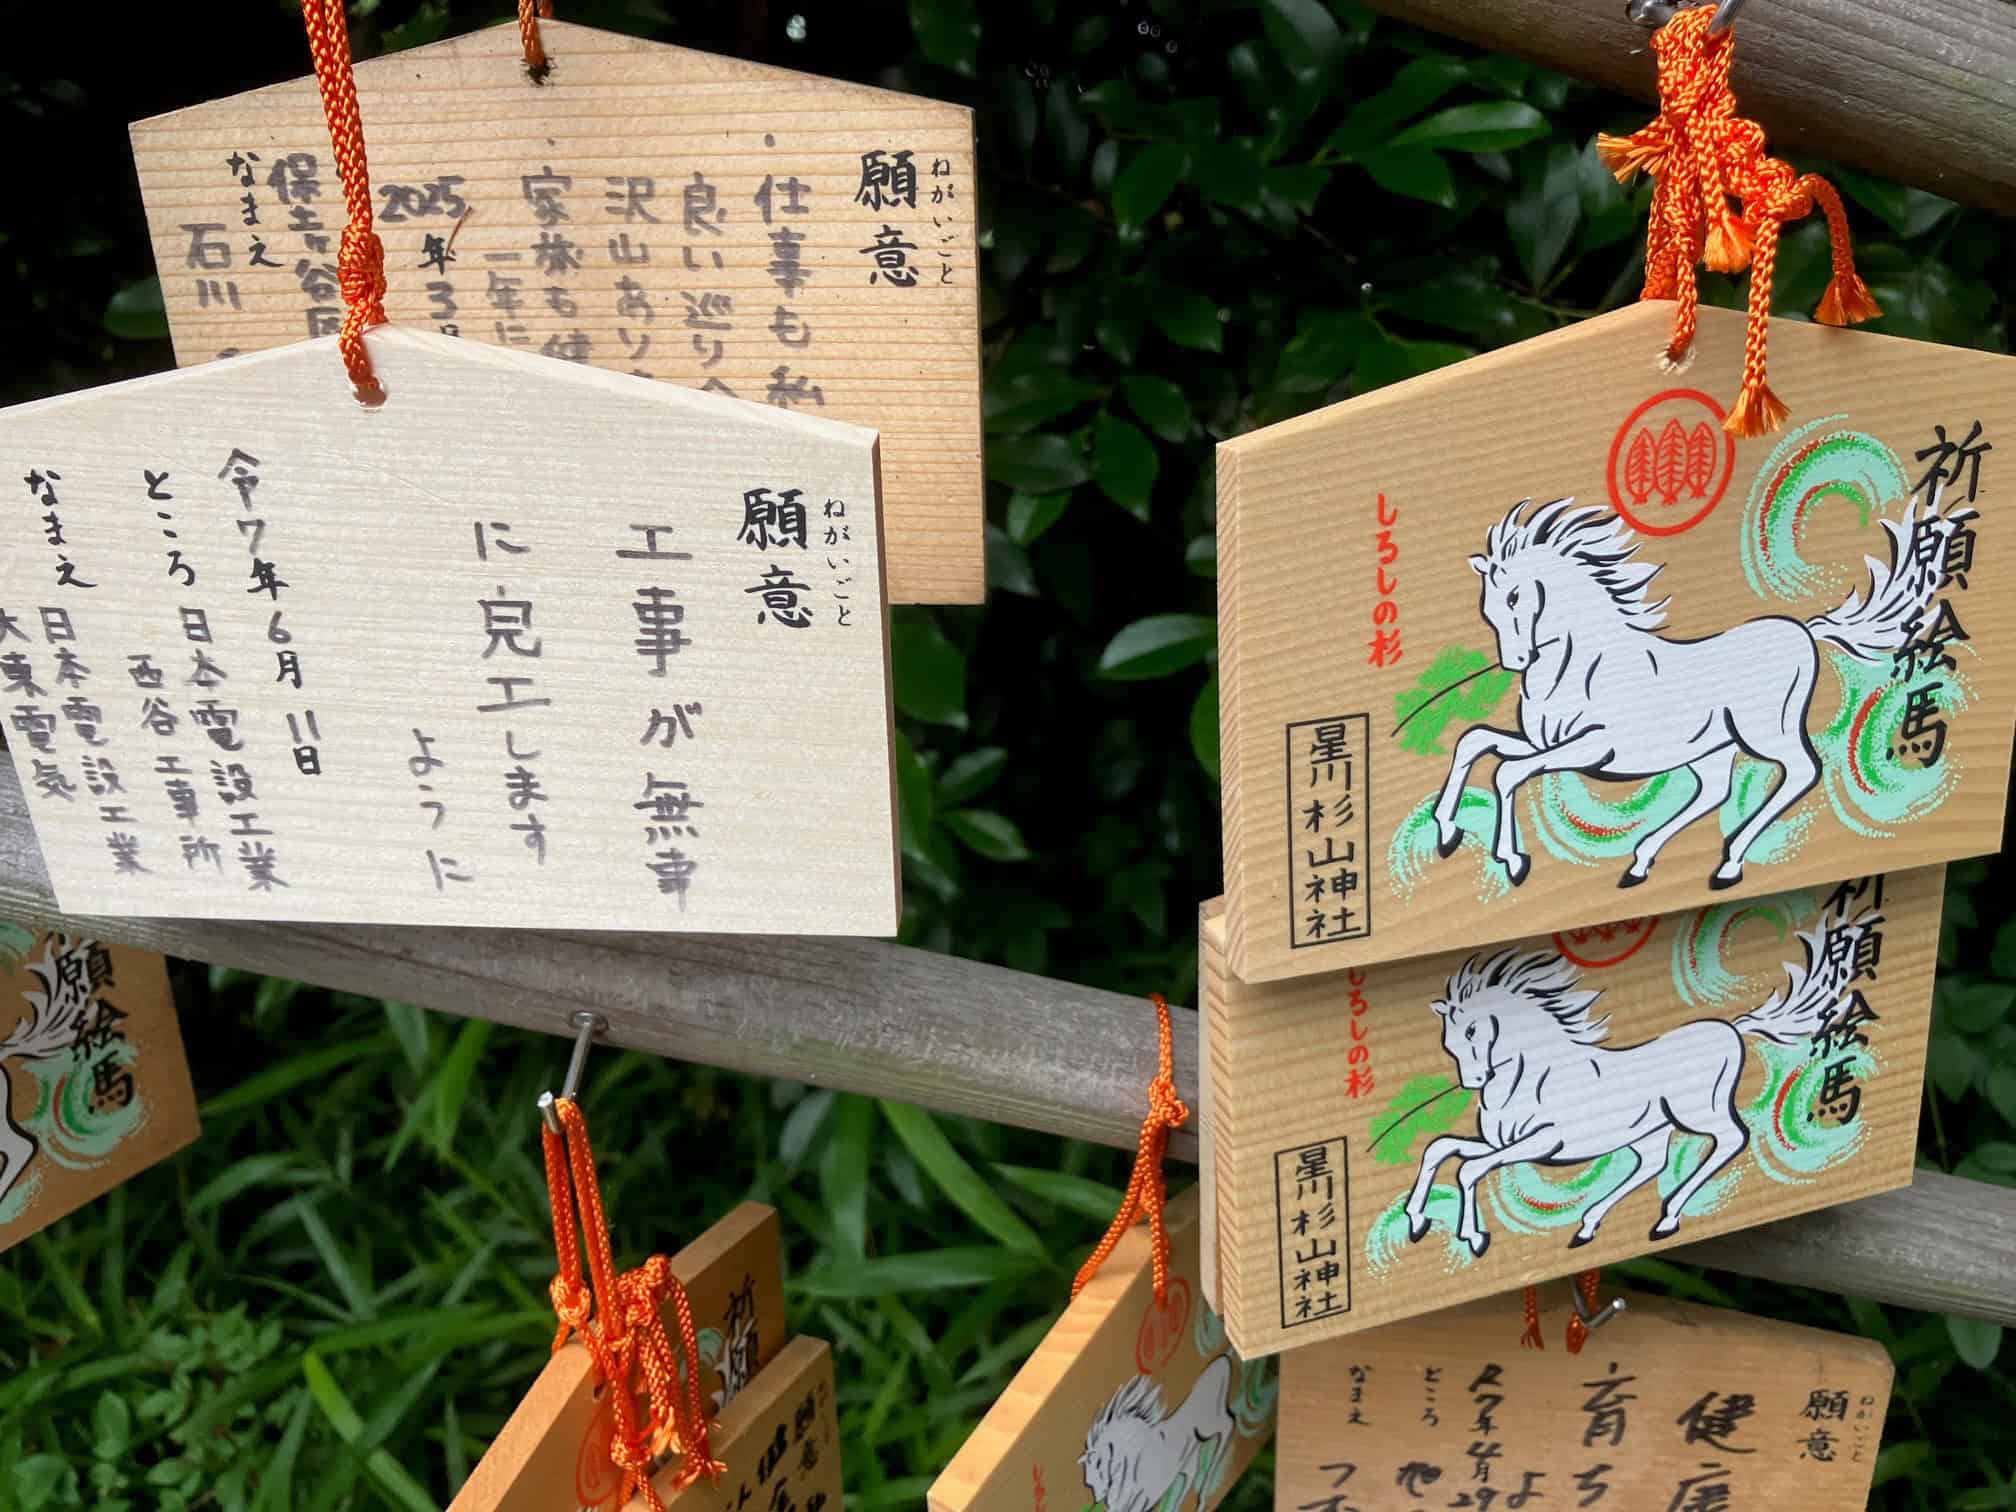 願意
ねがいごと
・仕事も私
良い巡り
沢山あり
・家族も健
一年に
2025年3月
保土ヶ谷区
なまえ
石川
願意
ねがいごと
工事が無事
に完工します
ように
令7年6月11日
ところ
日本電設工業
西谷工事所
なまえ
日本電設工業
大東電気
祈願絵馬
しるしの杉
星川杉山神社
祈願絵馬
しるしの杉
星川杉山神社
願絵馬
祈願
願意
しるしの
願意
ねがいごと
健康
育ち
よ
R7年4月29
ところ
なまえ